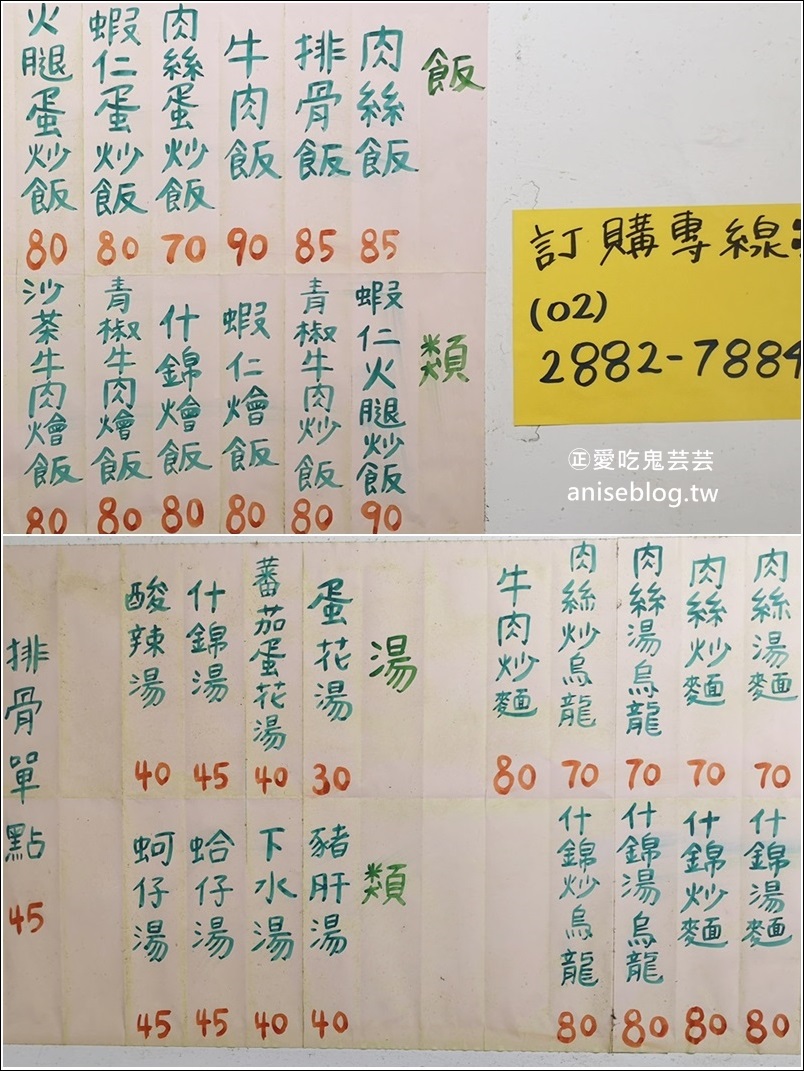 飯
類
肉絲飯
85
排骨飯
85
牛肉飯
90
肉絲蛋炒飯
70
蝦仁蛋炒飯
80
火腿蛋炒飯
80
蝦仁火腿炒飯
90
青椒牛肉炒飯
80
蝦仁燴飯
80
什錦燴飯
80
青椒牛肉燴飯
80
沙茶牛肉燴飯
80
訂購專線
(02)
2882-7884
正愛吃鬼芸芸
aniseblog.tw
肉絲湯麵
70
肉絲炒麵
70
肉絲湯烏龍
70
肉絲炒烏龍
70
牛肉炒麵
80
什錦湯麵
80
什錦炒麵
80
什錦湯烏龍
80
什錦炒烏龍
80
湯
類
蛋花湯
30
蕃茄蛋花湯
40
什錦湯
45
酸辣湯
40
豬肝湯
40
下水湯
40
蛤仔湯
45
蚵仔湯
45
排骨單點
45